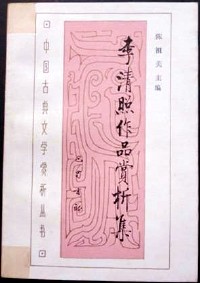 陈祖美主编
李清照作品赏析集
中国古典文学赏析丛书
巴蜀书社